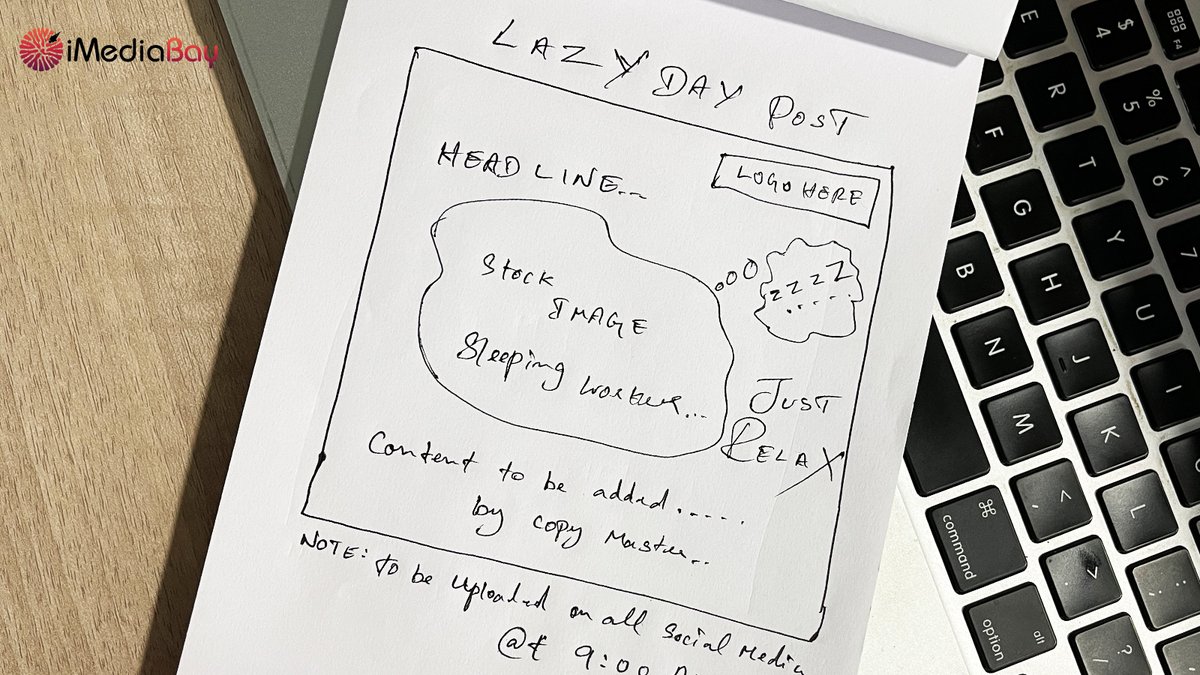 iMediaBay
LAZY DAY POST
HEADLINE...
LOGO HERE
zzzZ.....
Stock
IMAGE
Sleeping worker...
JUST
RELAX
Content to be added.....
by copy Master..
NOTE: to be uploaded on all social media
@ 9:00
E
$ 4
F4
R
% 5
F
T
^ 6
G
Y
7
B
H
U
N
J
I
M
K
< ,
L
⌘ command
> .
: ;
alt option
? /